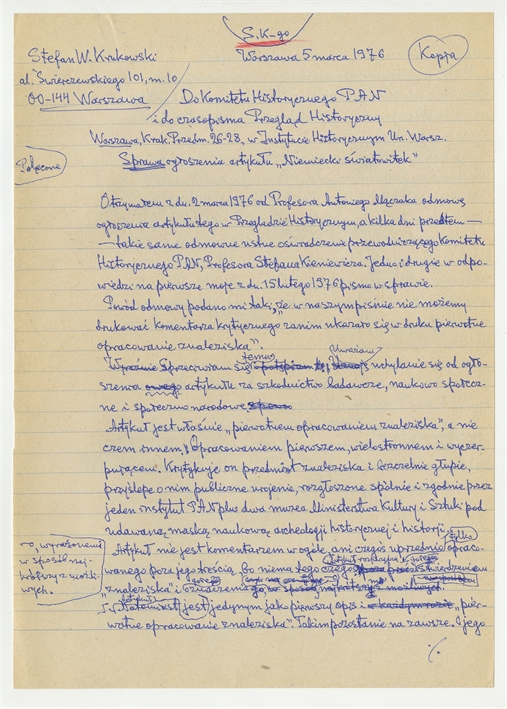 S. K-go
Stefan W. Krukowski
Warszawa 5 marca 1976
Kopia
al. Świerczewskiego 101, m. 10
00-144 Warszawa
Do Komitetu Historycznego PAN
i do czasopisma Przegląd Historyczny
Warszawa, Krak. Przedm. 26-28, w Instytucie Historycznym Un. Warsz.
Sprawa ogłoszenia artykułu "Niemiecki światowitek"
Polecone
Otrzymałem z du. 2 marca 1976 od Profesora Antoniego Mączaka odmowę
ogłoszenia artykułu tego w Przeglądzie Historycznym, a kilka dni przedtem —
— takie same odmowne ustne oświadczenie przewodniczącego Komitetu
Historycznego PAN, Profesora Stefana Kieniewicza. Jedno i drugie w odpo-
wiedzi na pierwsze moje z du. 15 lutego 1976 pismo w sprawie.
Powód odmowy podano mi tak, "że w naszym piśmie nie możemy
drukować komentarza krytycznego zanim ukazało się w druku pierwotne
opracowanie znaleziska".
Wyraźnie sprzeciwiam się temu i Uważam uchylanie się od ogło-
szenia artykułu za szkodnictwo badawcze, naukowo społecz-
ne i społeczno narodowe
Artykuł jest właśnie "pierwotnem opracowaniem znaleziska", a nie
czem innem, opracowaniem pierwszem, wielostronnem i wyczer-
pującem. Krytykuje on przedmiot znaleziska i bezczelnie głupie,
przyślepe o nim publiczne urojenie, rozgłoszone spólnie i zgodnie przez
jeden instytut PAN plus dwa muzea Ministerstwa Kultury i Sztuki pod
udawaną maską naukową archeologji historycznej i historji.
Artykuł nie jest komentarzem w ogóle, ani czegoś uprzednio opraco-
wanego poza jego treścią, bo niema tego czego
"znaleziska" i
o, wyrażonemi
w sposób naj-
jest jedynym jako pierwszy opis i "pier-
wotne opracowanie znaleziska". Takim pozostanie na zawsze. I jego
./.